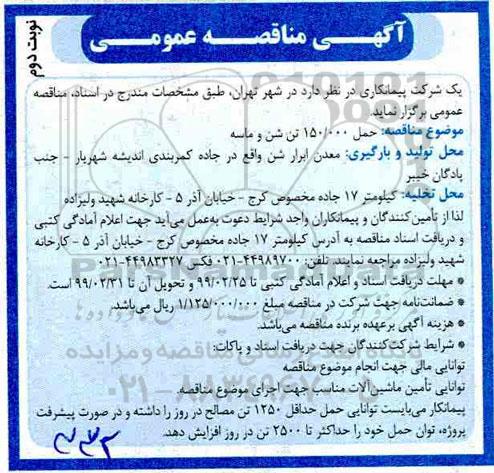 آگهی مناقصه عمومی
نوبت دوم
یک شرکت پیمانکاری در نظر دارد در شهر تهران، طبق مشخصات مندرج در اسناد، مناقصه
عمومی برگزار نماید.
موضوع مناقصه: حمل ۱۵۰/۰۰۰ تن شن و ماسه
محل تولید و بارگیری: معدن ابرار شن واقع در جاده کمربندی اندیشه شهریار - جنب
پادگان خیبر
محل تخلیه: کیلومتر ۱۷ جاده مخصوص کرج - خیابان آذر ۵ - کارخانه شهید ولیزاده
لذا از تأمین‌کنندگان و پیمانکاران واجد شرایط دعوت به‌عمل می‌آید جهت اعلام آمادگی کتبی
و دریافت اسناد مناقصه به آدرس کیلومتر ۱۷ جاده مخصوص کرج - خیابان آذر ۵ - کارخانه
شهید ولیزاده مراجعه نمایند. تلفن: ۴۴۹۸۹۷۰۰-۰۲۱ فکس ۴۴۹۸۳۳۲۷-۰۲۱
* مهلت دریافت اسناد و اعلام آمادگی کتبی تا ۹۹/۰۲/۲۵ و تحویل آن تا ۹۹/۰۲/۳۱ است.
* ضمانت‌نامه جهت شرکت در مناقصه مبلغ ۱/۱۲۵/۰۰۰/۰۰۰ ریال می‌باشد.
* هزینه آگهی برعهده برنده مناقصه می‌باشد.
* شرایط شرکت‌کنندگان جهت دریافت اسناد و پاکات:
توانایی مالی جهت انجام موضوع مناقصه
توانایی تأمین ماشین‌آلات مناسب جهت اجرای موضوع مناقصه.
پیمانکار می‌بایست توانایی حمل حداقل ۱۲۵۰ تن مصالح در روز را داشته و در صورت پیشرفت
پروژه، توان حمل خود را حداکثر تا ۲۵۰۰ تن در روز افزایش دهد.